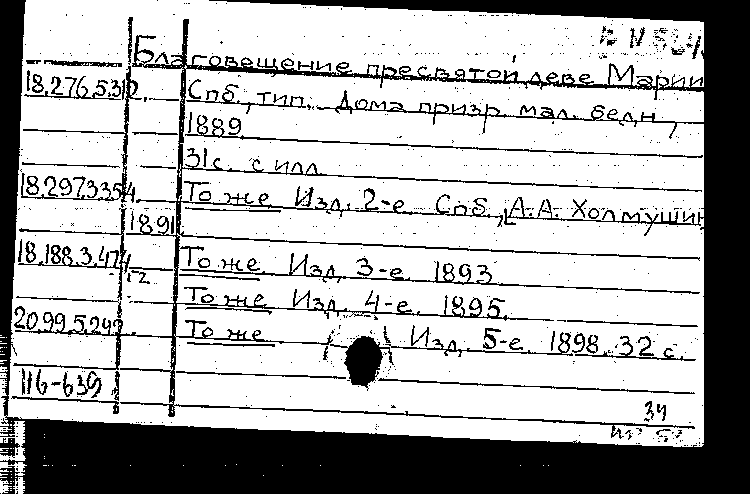 Благовещение пресвятой деве Марии
18.276.5.312. Спб., тип. Дома призр. мал. бедн.,
1889.
31 с. с илл.
18.297.3.354. То же. Изд. 2-е. Спб., А.А. Холмушин
1891.
18.188.3.474 То же. Изд. 3-е. 1893
То же. Изд. 4-е. 1895.
20.99.5.249. То же. Изд. 5-е. 1898. 32 с.
116-639
34